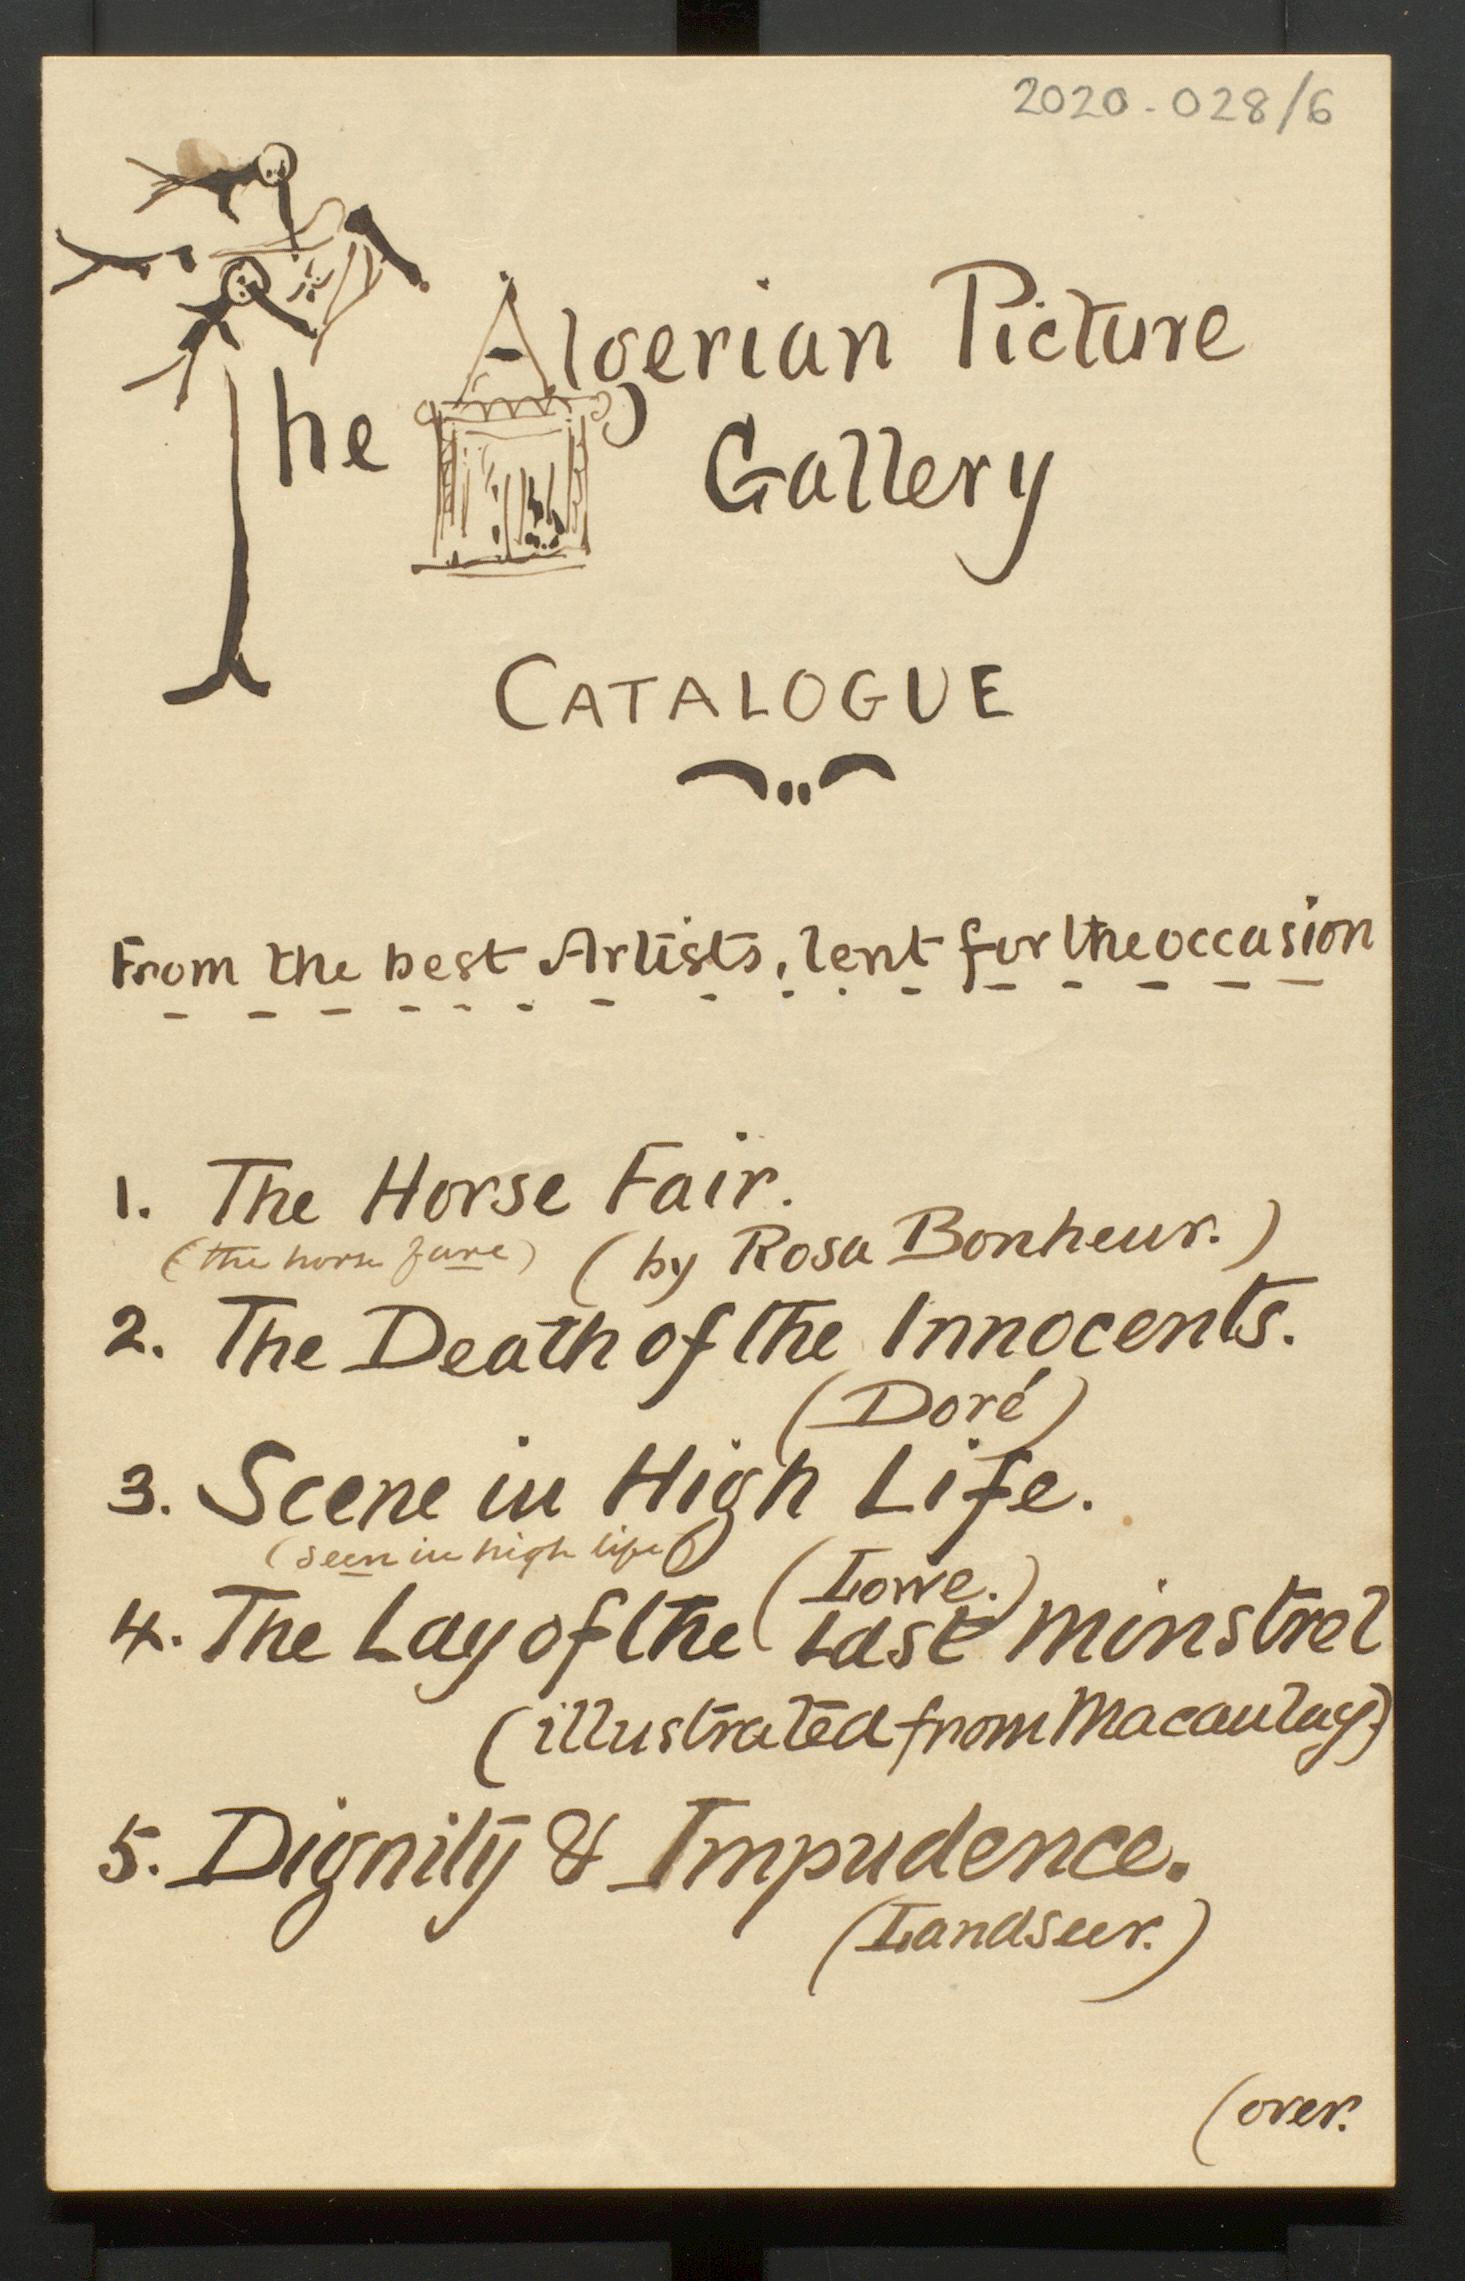 2020-028/6
The Algerian Picture
Gallery
CATALOGUE
From the best Artists, lent for the occasion
1. The Horse Fair.
(the horse fare) (by Rosa Bonheur.)
2. The Death of the Innocents.
(Doré)
3. Scene in High Life.
(seen in high life) (Lowe.)
4. The Lay of the Last Minstrel
(illustrated from Macaulay)
5. Dignity & Impudence.
(Landseer.)
(over.